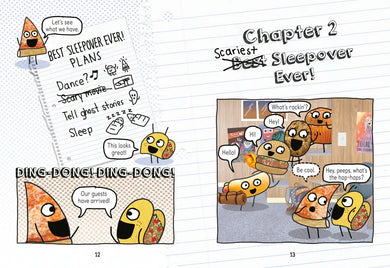 Let's see
what we have.
BEST SLEEPOVER EVER!
PLANS
Dance?
Scary movie
Tell ghost stories
zzzzz
Sleep
This looks
great!
DING-DONG! DING-DONG!
Our guests
have arrived!
12
Chapter 2
Scariest
Best Sleepover
Ever!
What's rockin'?
Hey!
Hi!
Hello!
Be cool.
Hey, peeps, what's
the hap-haps?
13